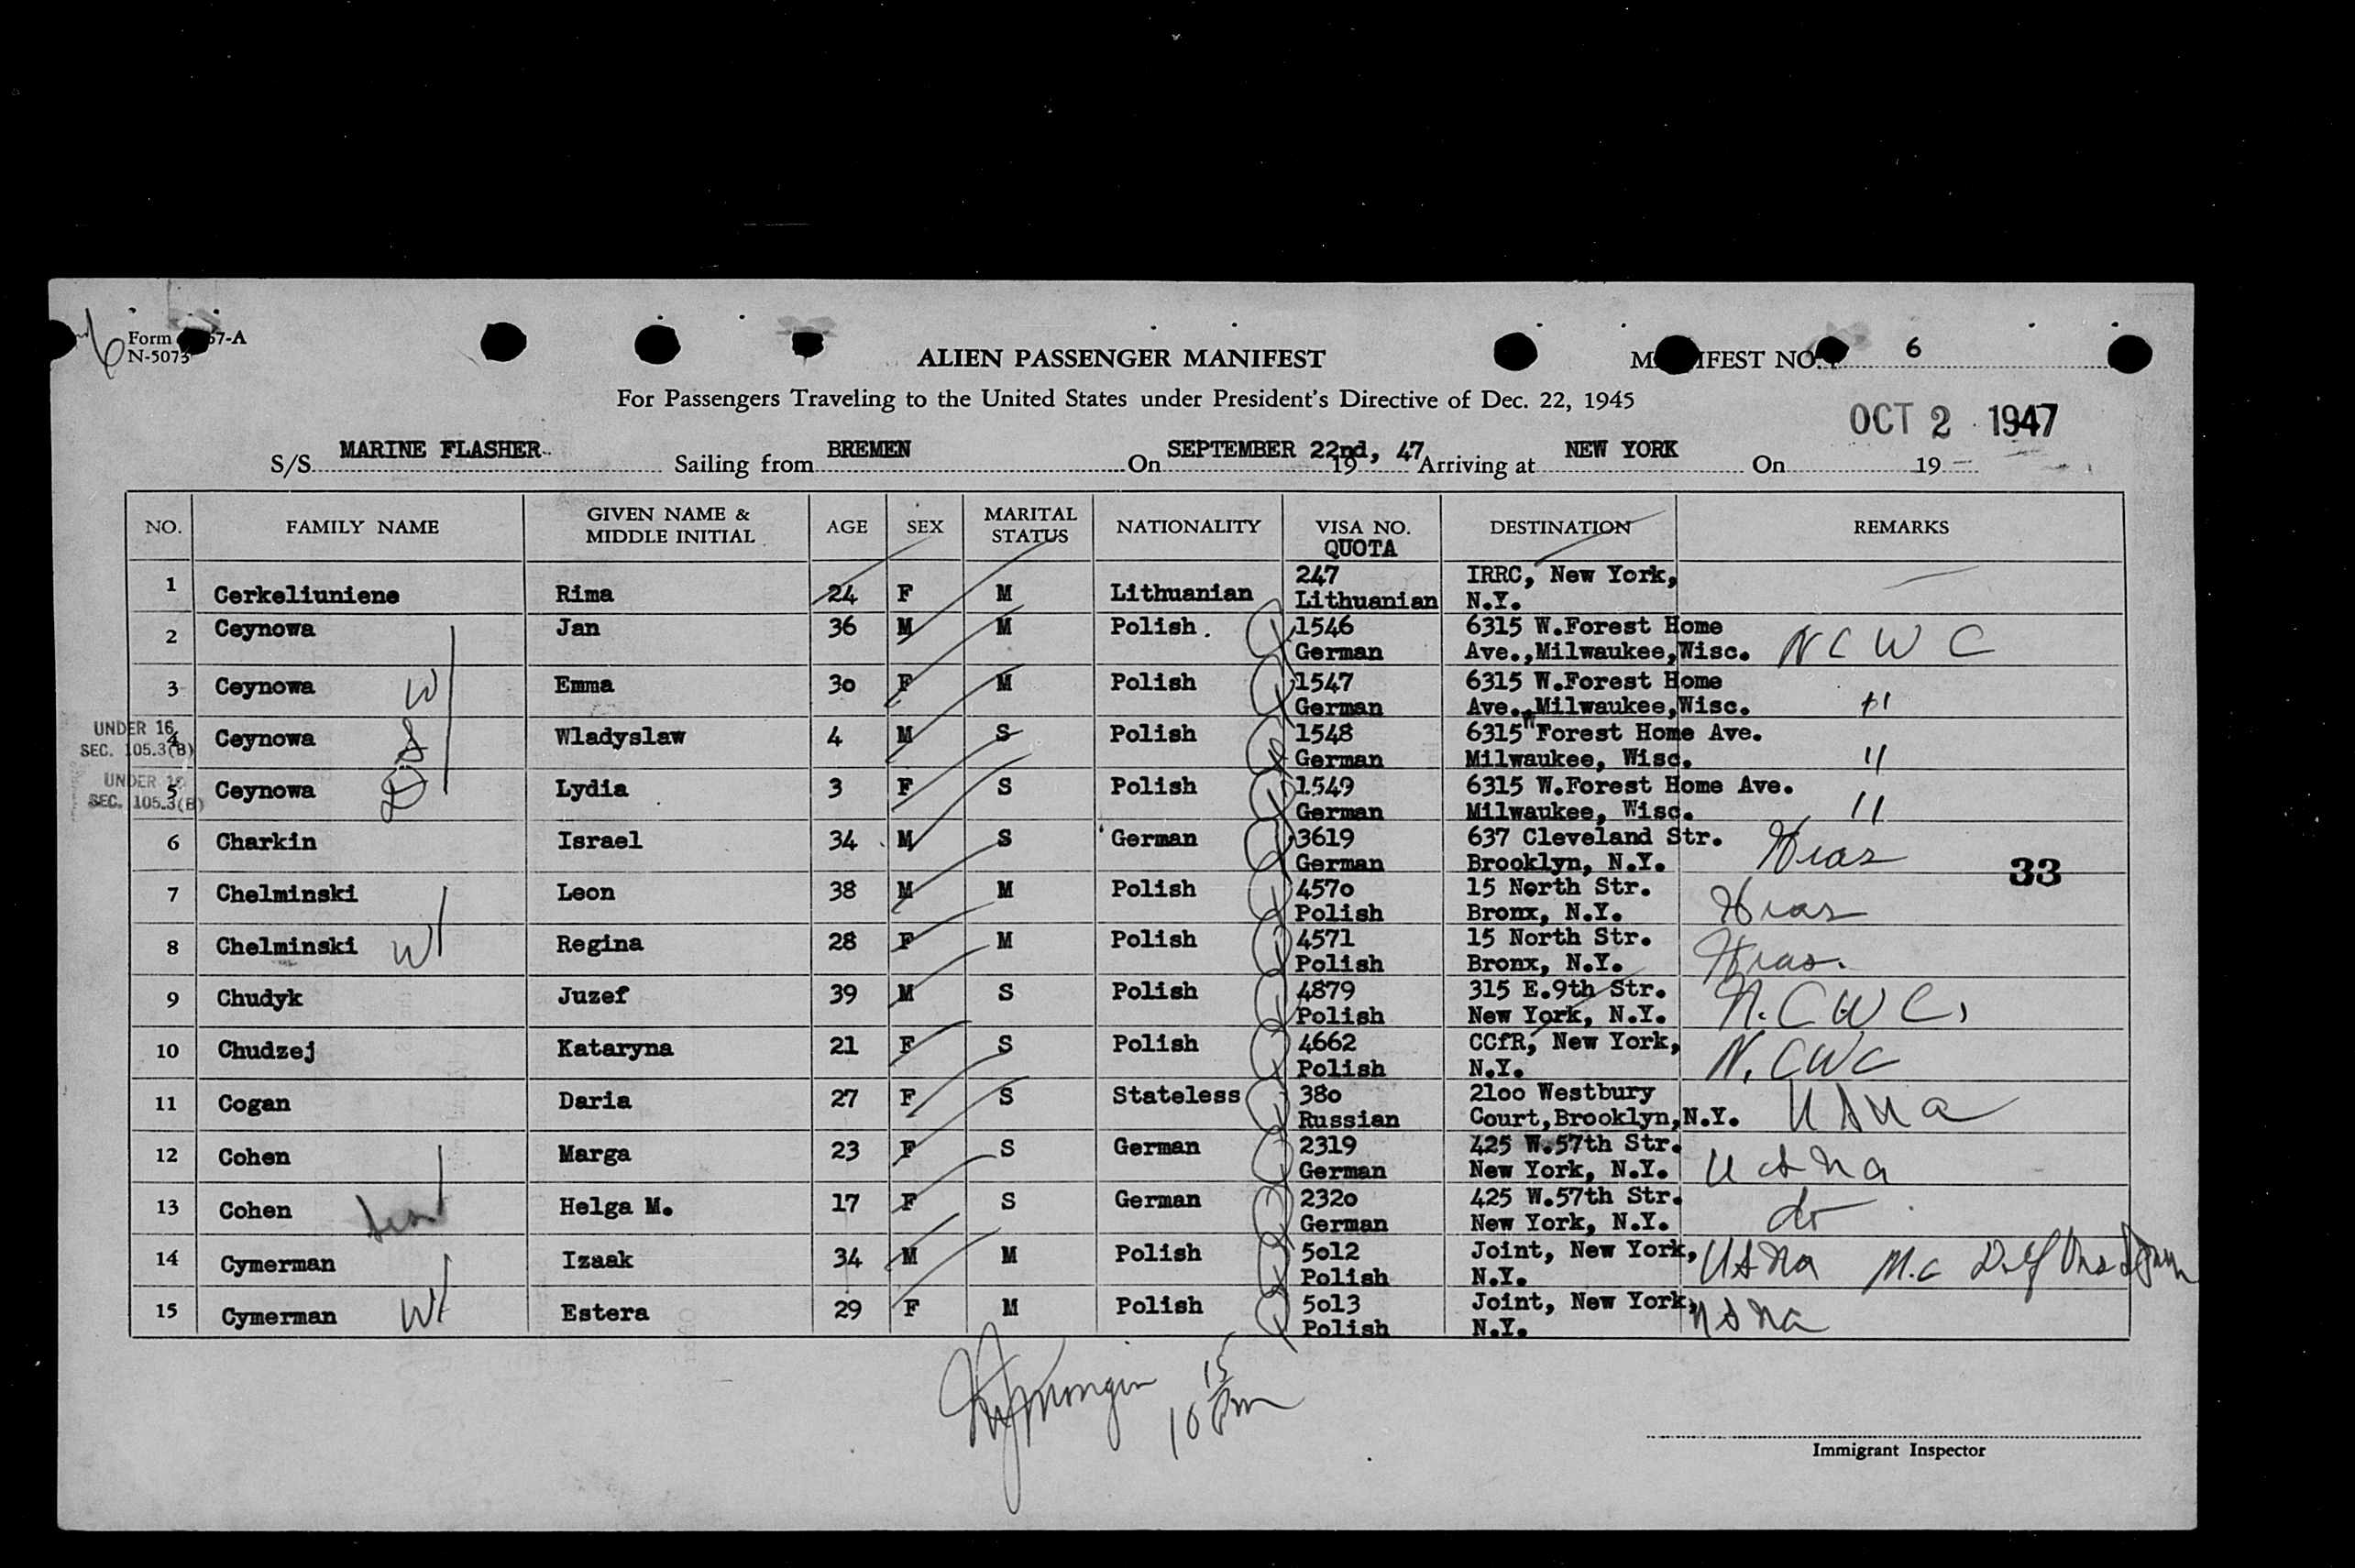 Form 67-A
N-5073
ALIEN PASSENGER MANIFEST
MANIFEST NO. 6
For Passengers Traveling to the United States under President's Directive of Dec. 22, 1945
OCT 2 1947
S/S MARINE FLASHER Sailing from BREMEN On SEPTEMBER 22nd, 1947 Arriving at NEW YORK On 19
NO. FAMILY NAME GIVEN NAME & MIDDLE INITIAL AGE SEX MARITAL STATUS NATIONALITY VISA NO. QUOTA DESTINATION REMARKS
1 Cerkeliuniene Rima 24 F M Lithuanian 247 Lithuanian IRRC, New York, N.Y.
2 Ceynowa Jan 36 M M Polish. 1546 German 6315 W.Forest Home Ave.,Milwaukee,Wisc. NCWC
3 Ceynowa W Emma 30 F M Polish 1547 German 6315 W.Forest Home Ave.,Milwaukee,Wisc. "
UNDER 16 SEC. 105.3(B)
4 Ceynowa Wladyslaw 4 M S Polish 1548 German 6315 W Forest Home Ave. Milwaukee, Wisc. "
UNDER 16 SEC. 105.3(B)
5 Ceynowa Lydia 3 F S Polish 1549 German 6315 W.Forest Home Ave. Milwaukee, Wisc. "
6 Charkin Israel 34 M S German 3619 German 637 Cleveland Str. Brooklyn, N.Y. Hias 33
7 Chelminski Leon 38 M M Polish 4570 Polish 15 North Str. Bronx, N.Y. Hias
8 Chelminski W Regina 28 F M Polish 4571 Polish 15 North Str. Bronx, N.Y. Hias.
9 Chudyk Juzef 39 M S Polish 4879 Polish 315 E.9th Str. New York, N.Y. N.CWC,
10 Chudzej Kataryna 21 F S Polish 4662 Polish CCfR, New York, N.Y. N.CWC
11 Cogan Daria 27 F S Stateless 380 Russian 2100 Westbury Court,Brooklyn,N.Y. USNA
12 Cohen Marga 23 F S German 2319 German 425 W.57th Str. New York, N.Y. USNA
13 Cohen Helga M. 17 F S German 2320 German 425 W.57th Str. New York, N.Y. do
14 Cymerman Izaak 34 M M Polish 5012 Polish Joint, New York, N.Y. USNA M.C
15 Cymerman W Estera 29 F M Polish 5013 Polish Joint, New York, N.Y. USNA
15
10 Pm
Immigrant Inspector